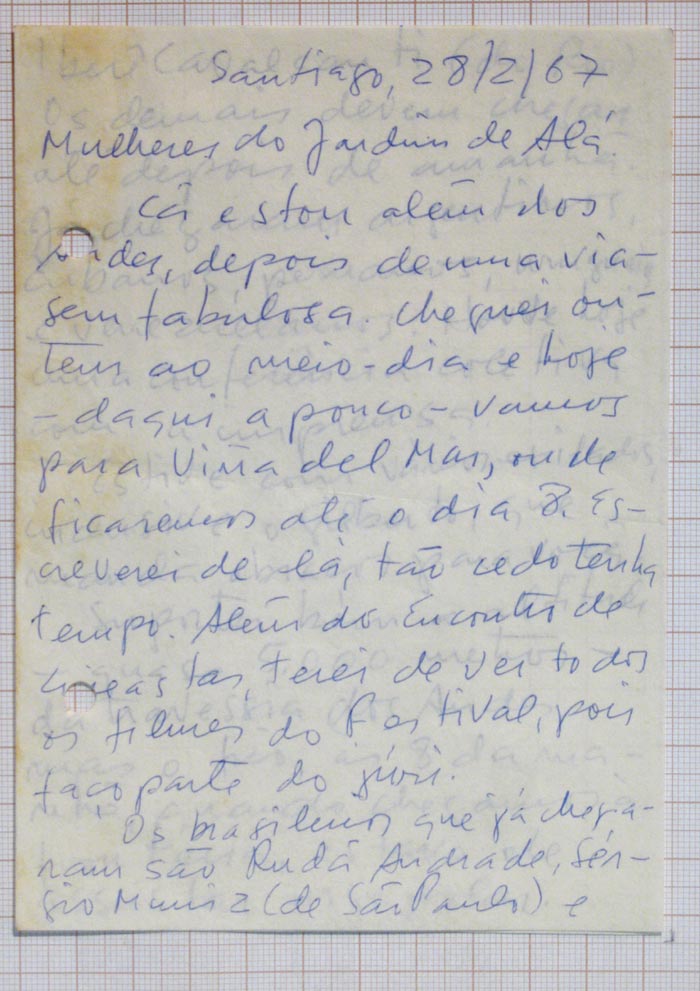 Santiago, 28/2/67
Mulheres do Jardim de Alá.
Cá estou além dos
Andes, depois de uma via-
gem fabulosa. Cheguei on-
tem ao meio-dia e hoje
- daqui a pouco - vamos
para Viña del Mar, onde
ficaremos até o dia 8. Es-
creverei de lá, tão cedo tenha
tempo. Além do Encontro de
Cineastas, terei de ver todos
os filmes do Festival, pois
faço parte do júri.
Os brasileiros que já chega-
ram são Rudá Andrade, Sér-
gio Muniz (de São Paulo) e